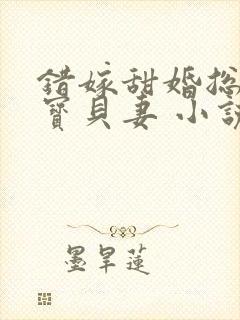 錯嫁甜婚總
寶貝妻 小說
墨旱蓮